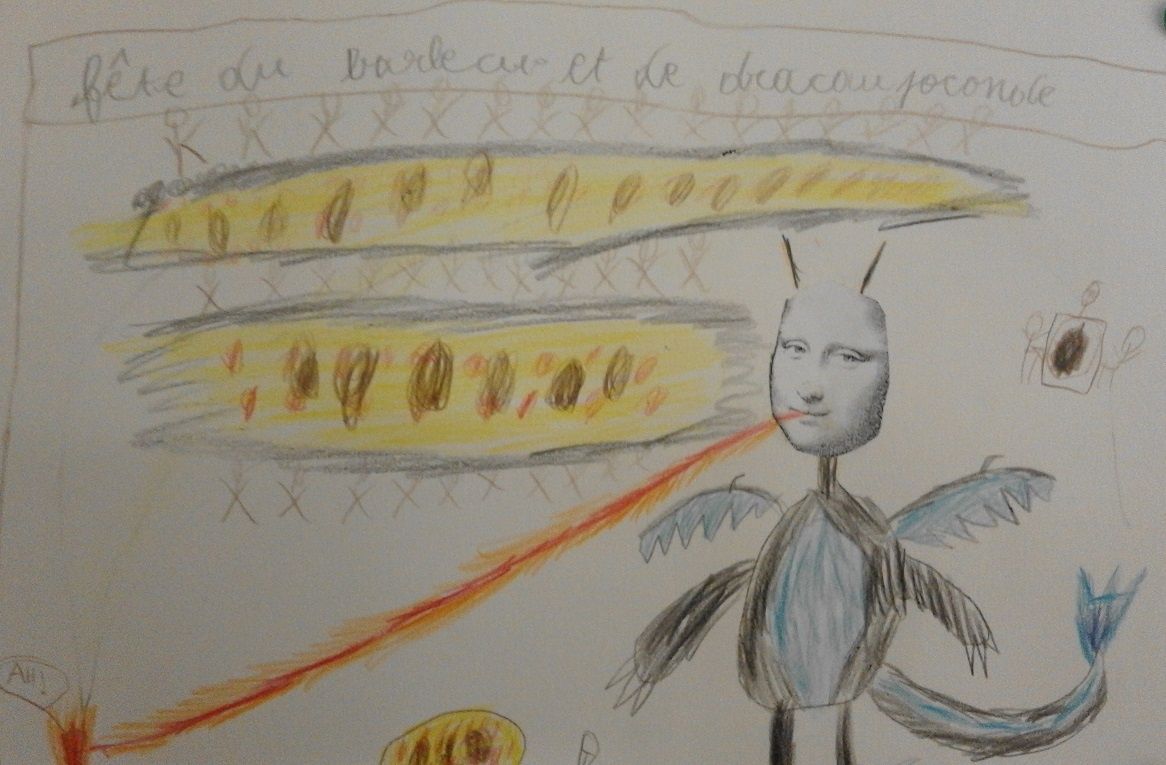 fête du barbecue et de dracau joconde
AH!